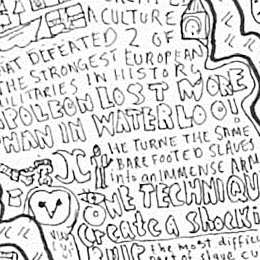 A CULTURE
AT DEFEATED 2 OF
THE STRONGEST EUROPEAN
MILITARIES IN HISTORY
APOLEON LOST MORE
HAN IN WATERLOO
HE TURNE THE SAME
BAREFOOTED SLAVES
into an IMMENSE ARM
ONE TECHNIQU
Create a shocki
the most difficu
part of slave cu